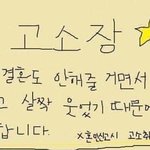 고소장
결혼도 안해줄 거면서
고 살짝 웃었기 때문에
합니다. X혼인신고시 고소취